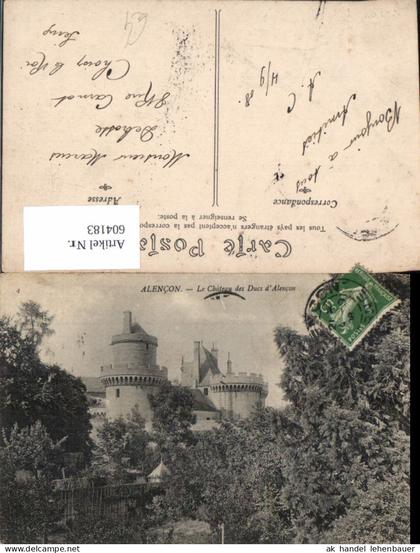 Carte Postale
Tous les pays étrangers n'acceptent pas la correspon
Se renseigner à la poste.
Correspondance
Adresse
Bonjour à tous
Amitiés
A. C
4/9 08.
Monsieur Marcus
Delhotte
Rue Carnot
Choisy le Roi
Seine
64
Artikel Nr.
604183
ALENÇON. - Le Château des Ducs d'Alençon
ak handel lehenbauer